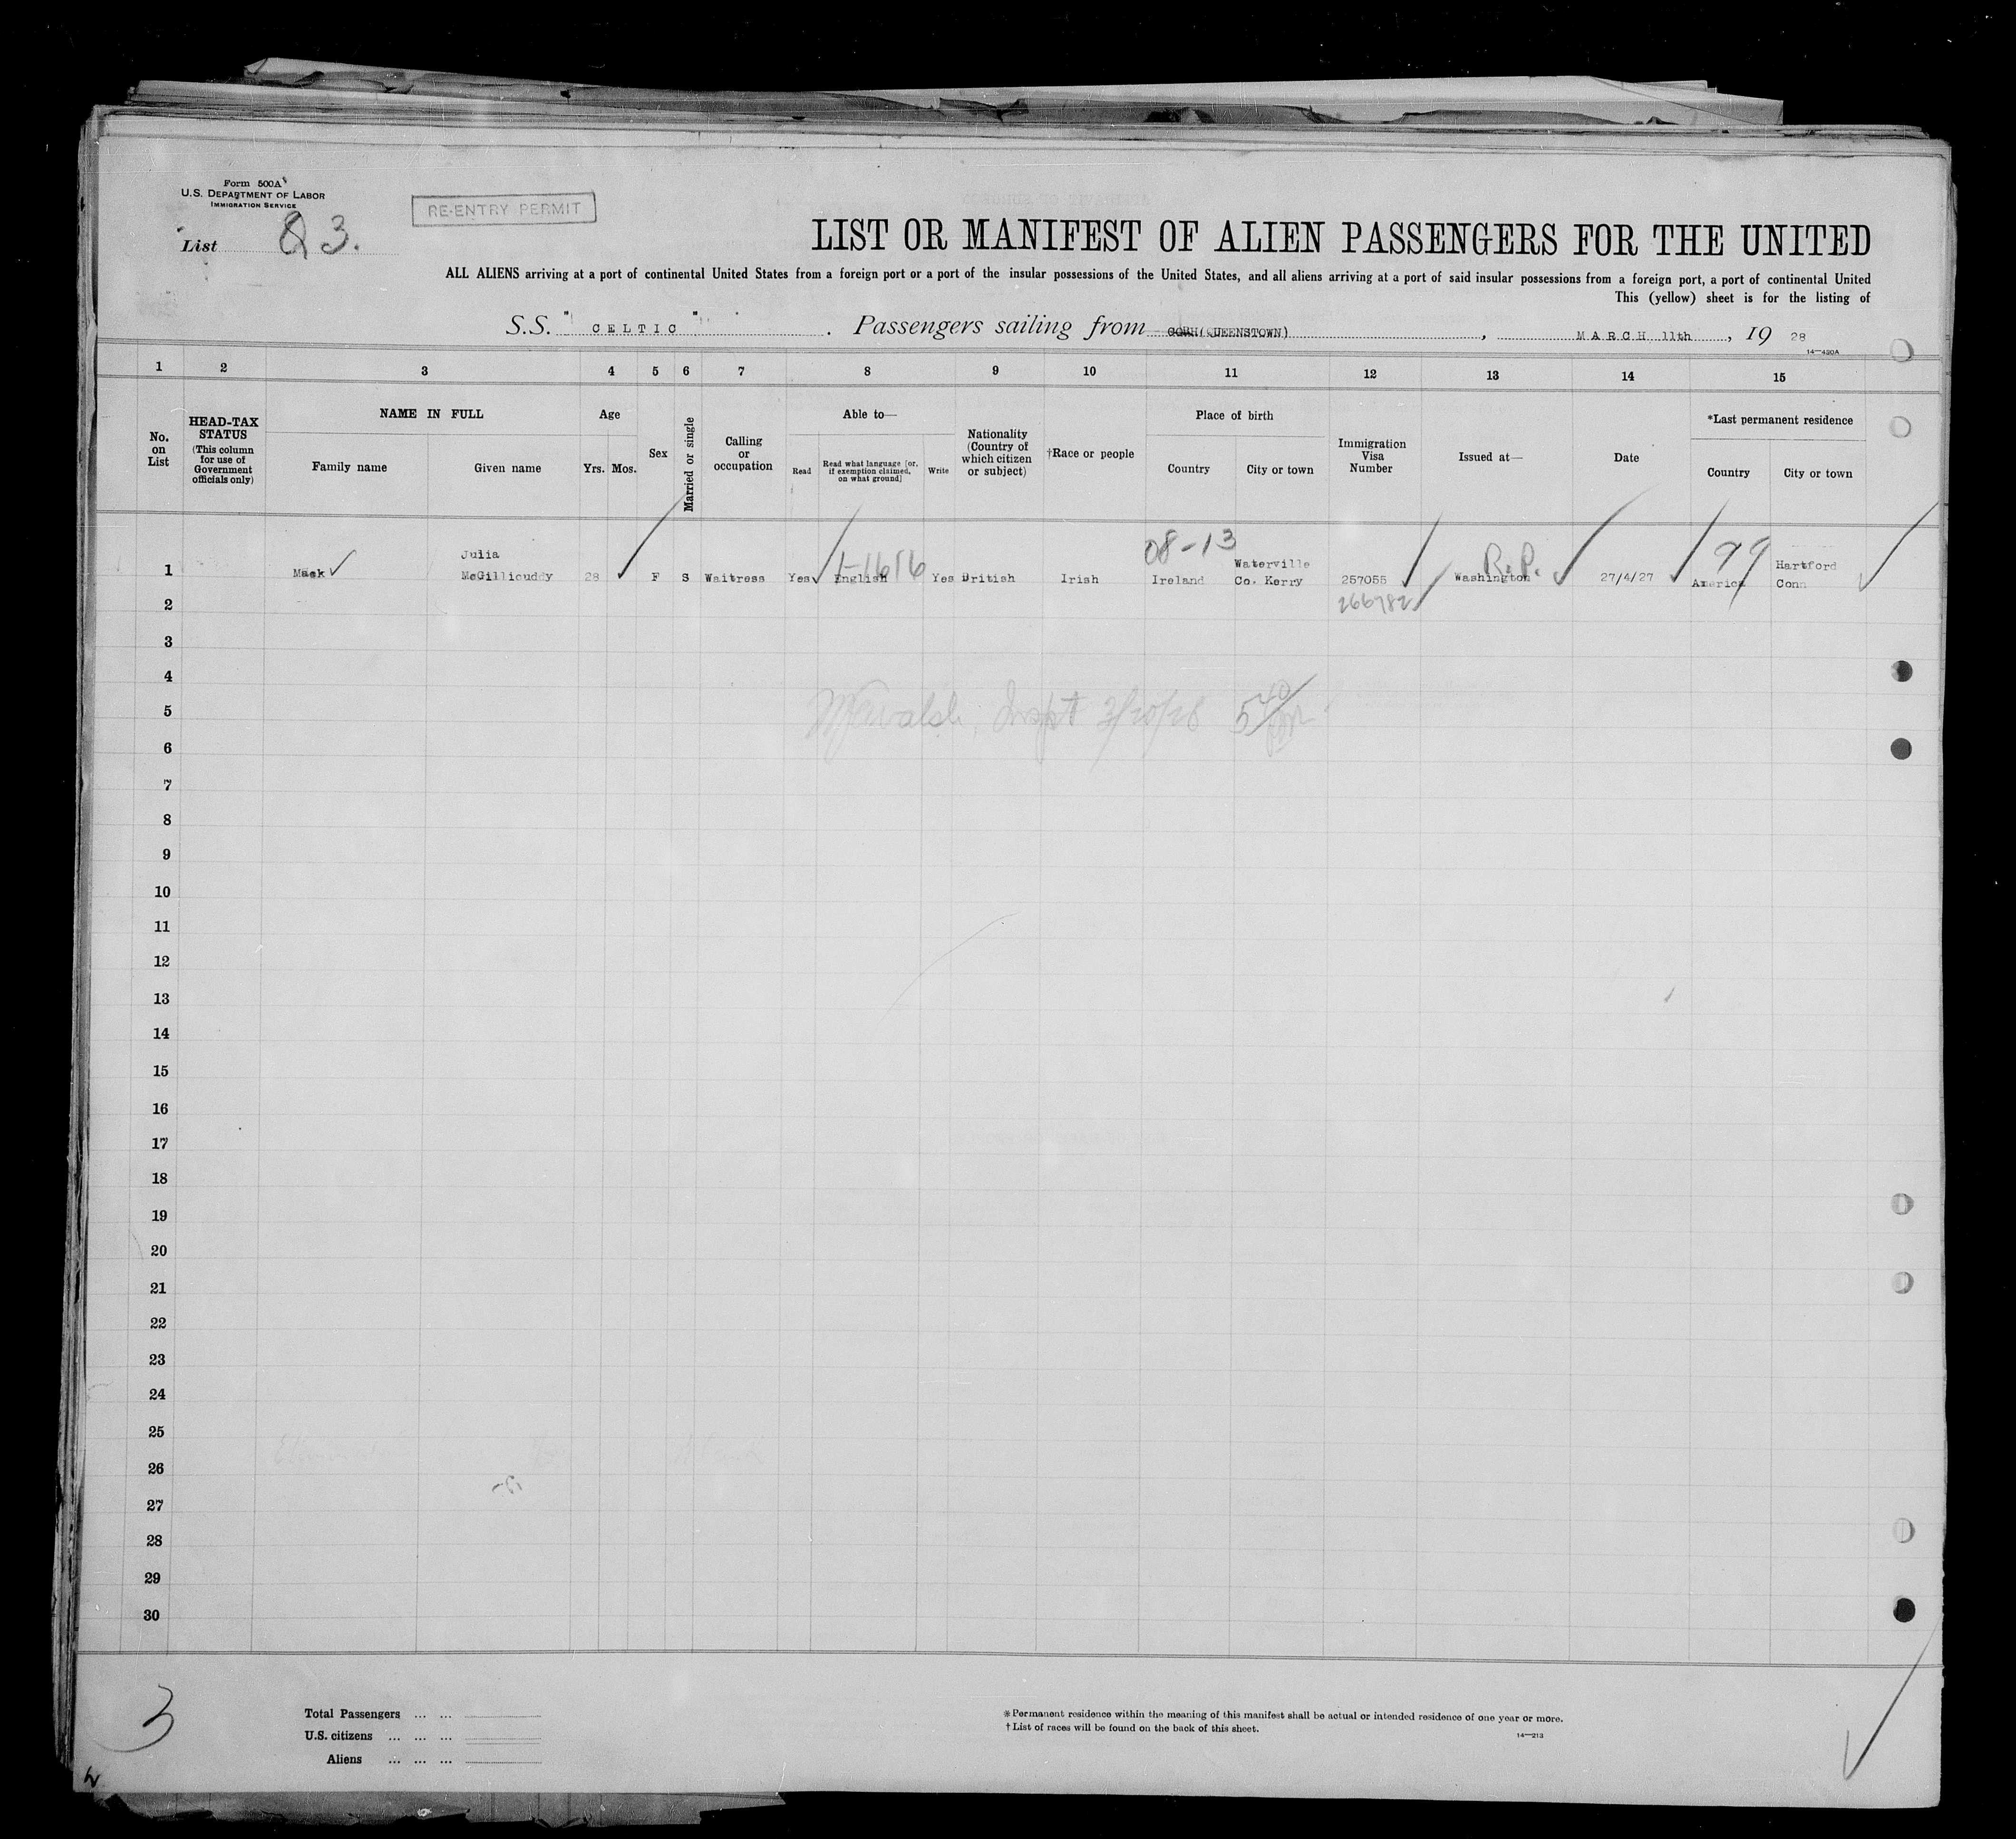 Form 500A
U.S. DEPARTMENT OF LABOR
IMMIGRATION SERVICE
RE-ENTRY PERMIT
List 3.
LIST OR MANIFEST OF ALIEN PASSENGERS FOR THE UNITED
ALL ALIENS arriving at a port of continental United States from a foreign port or a port of the insular possessions of the United States, and all aliens arriving at a port of said insular possessions from a foreign port, a port of continental United
This (yellow) sheet is for the listing of
S.S. " CELTIC " . Passengers sailing from COBH(QUEENSTOWN) , MARCH 11th , 19 28
14—420A
1 2 3 4 5 6 7 8 9 10 11 12 13 14 15
No. on List
HEAD-TAX STATUS
(This column for use of Government officials only)
NAME IN FULL
Family name
Given name
Age
Yrs. Mos.
Sex
Married or single
Calling or occupation
Able to—
Read
Read what language [or, if exemption claimed, on what ground]
Write
Nationality (Country of which citizen or subject)
†Race or people
Place of birth
Country
City or town
Immigration Visa Number
Issued at—
Date
*Last permanent residence
Country
City or town
08-13 99
Julia Waterville R.P. Hartford
1 Mack McGillicuddy 28 F S Waitress Yes English Yes British Irish Ireland Co. Kerry 257055 Washington 27/4/27 America Conn
1-1616
2 266782
3
4
5 Walsh, Inspt 3/20/28 5 40
6
7
8
9
10
11
12
13
14
15
16
17
18
19
20
21
22
23
24
25
26
27
28
29
30
3
Total Passengers ... ...
U.S. citizens ... ... ...
Aliens ... ... ...
* Permanent residence within the meaning of this manifest shall be actual or intended residence of one year or more.
† List of races will be found on the back of this sheet.
14—213